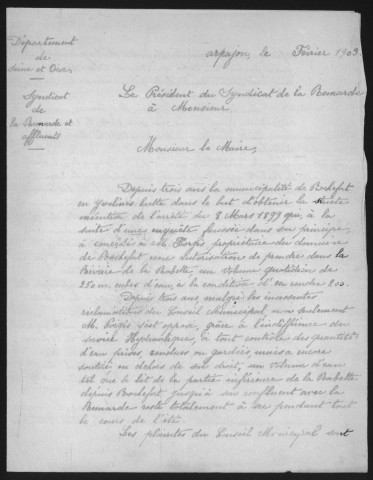 Département
de
Seine et Oise
Syndicat
de
la Remarde et
affluents
Arpajon, le Février 1903
Le Président du Syndicat de la Remarde
à Monsieur
Monsieur le Maire,
Depuis trois ans la municipalité de Rochefort
en Yvelines lutte dans le but d'obtenir la stricte
exécution de l'arrêté du 8 Mars 1899 qui, à la
suite d'une enquête faussée dans son principe,
a concédé à M. Porgès propriétaire du domaine
de Rochefort une autorisation de prendre dans la
Rivière de la Rabette, un volume quotidien de
250 m. cubes d'eau, à la condition d'en rendre 200.
Depuis trois ans, malgré les incessantes
réclamations du Conseil Municipal, non seulement
M. Porgès s'est opposé, grâce à l'indifférence du
service Hydraulique, à tout contrôle des quantités
d'eau prises, rendues ou gardées, mais a encore
soutiré en dehors de son droit, un volume d'eau
tel que le lit de la partie inférieure de la Rabette
depuis Rochefort jusqu'à son confluent avec la
Remarde reste totalement à sec pendant tout
le cours de l'été.
Les plaintes du Conseil Municipal sont